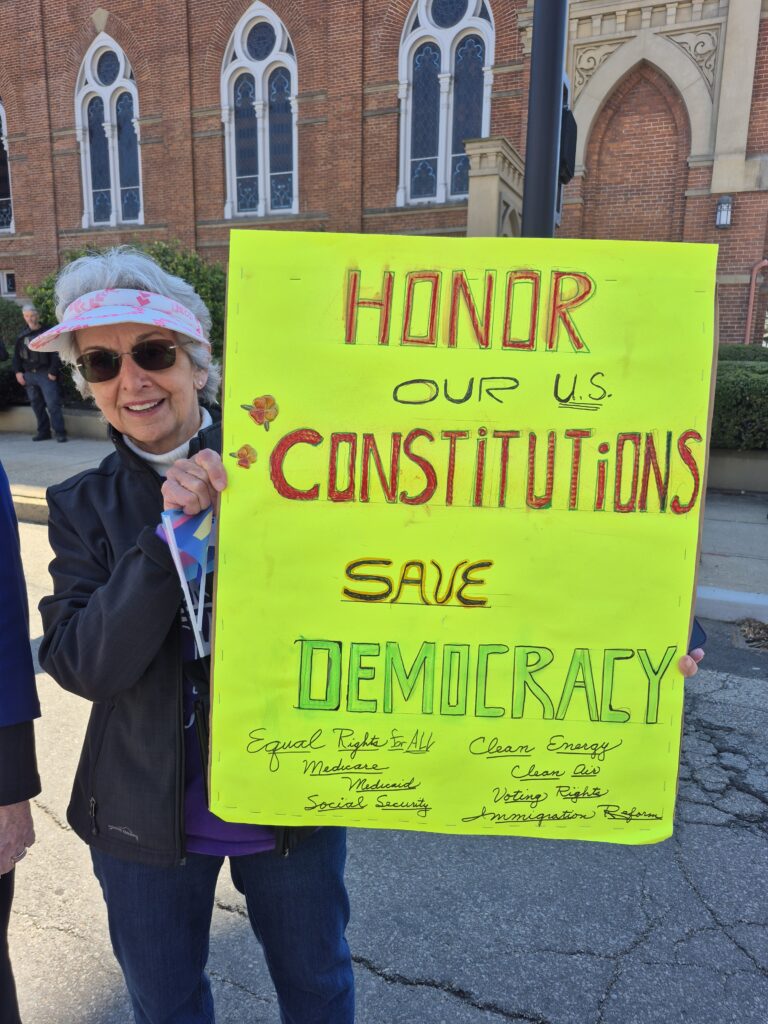 HONOR
OUR U.S.
CONSTITUTIONS
SAVE
DEMOCRACY
Equal Rights for ALL
Medicare
Medicaid
Social Security
Clean Energy
Clean Air
Voting Rights
Immigration Reform